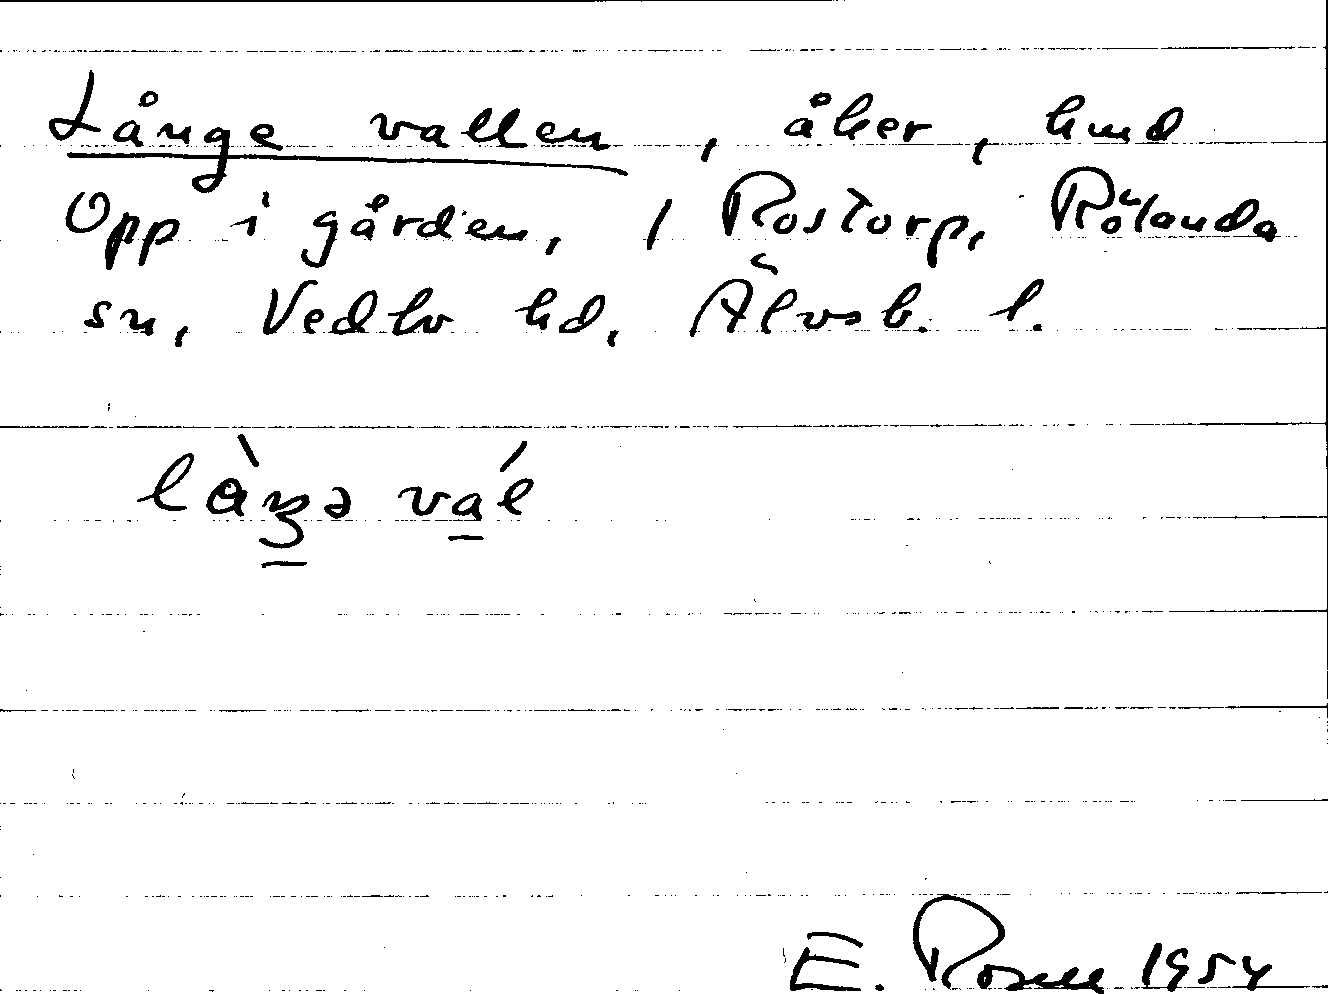 Långe vallen, åker, hmd
Opp i gården, 1 Rostorp, Rölanda
sn, Vedbo hd, Älvsb. l.
làŋə vál
E. Rosell 1954